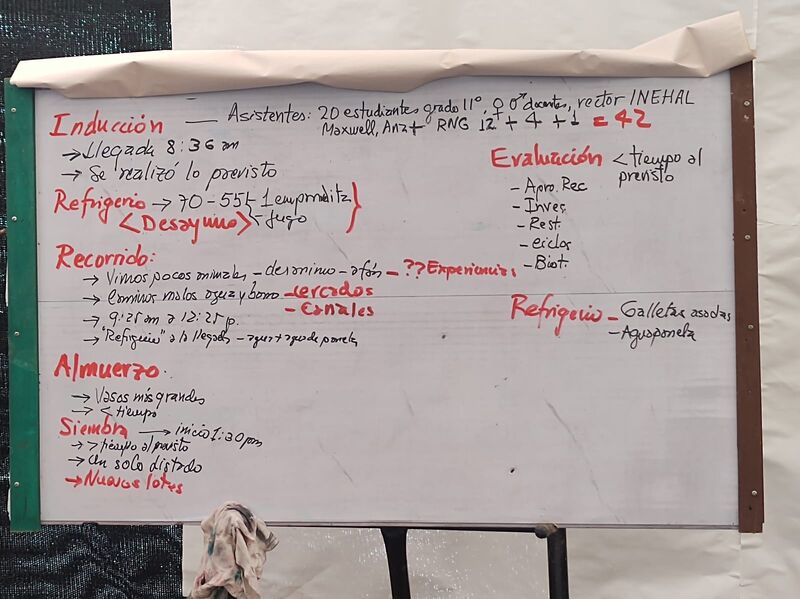 Inducción — Asistentes: 20 estudiantes grado 11°, ♀ ♂ docentes, rector INEHAL
Maxwell, Ana + RNG 12 + 4 + 1 = 42
→ Llegada 8:36 am
→ Se realizó lo previsto
Refrigerio → 70-55 { - 1 empanadita
- Jugo }
<Desayuno>
Recorrido:
→ Vimos pocos animales - desanimo - afán - ?? Experiencias
→ Caminos malos agua y barro - cercados
- canales
→ 9:25 am a 12:25 p.
→ "Refrigerio" a la llegada - agua + agua de panela
Almuerzo.
→ Vasos más grandes
→ < tiempo
Siembra → inicio 1:20 pm
→ > tiempo al previsto
→ Un solo listado
→ Nuevos lotes
Evaluación < tiempo al
previsto
- Apro. Rec
- Inves
- Rest.
- ciclos
- Biot.
Refrigerio - Galletas asadas
- Aguapanela